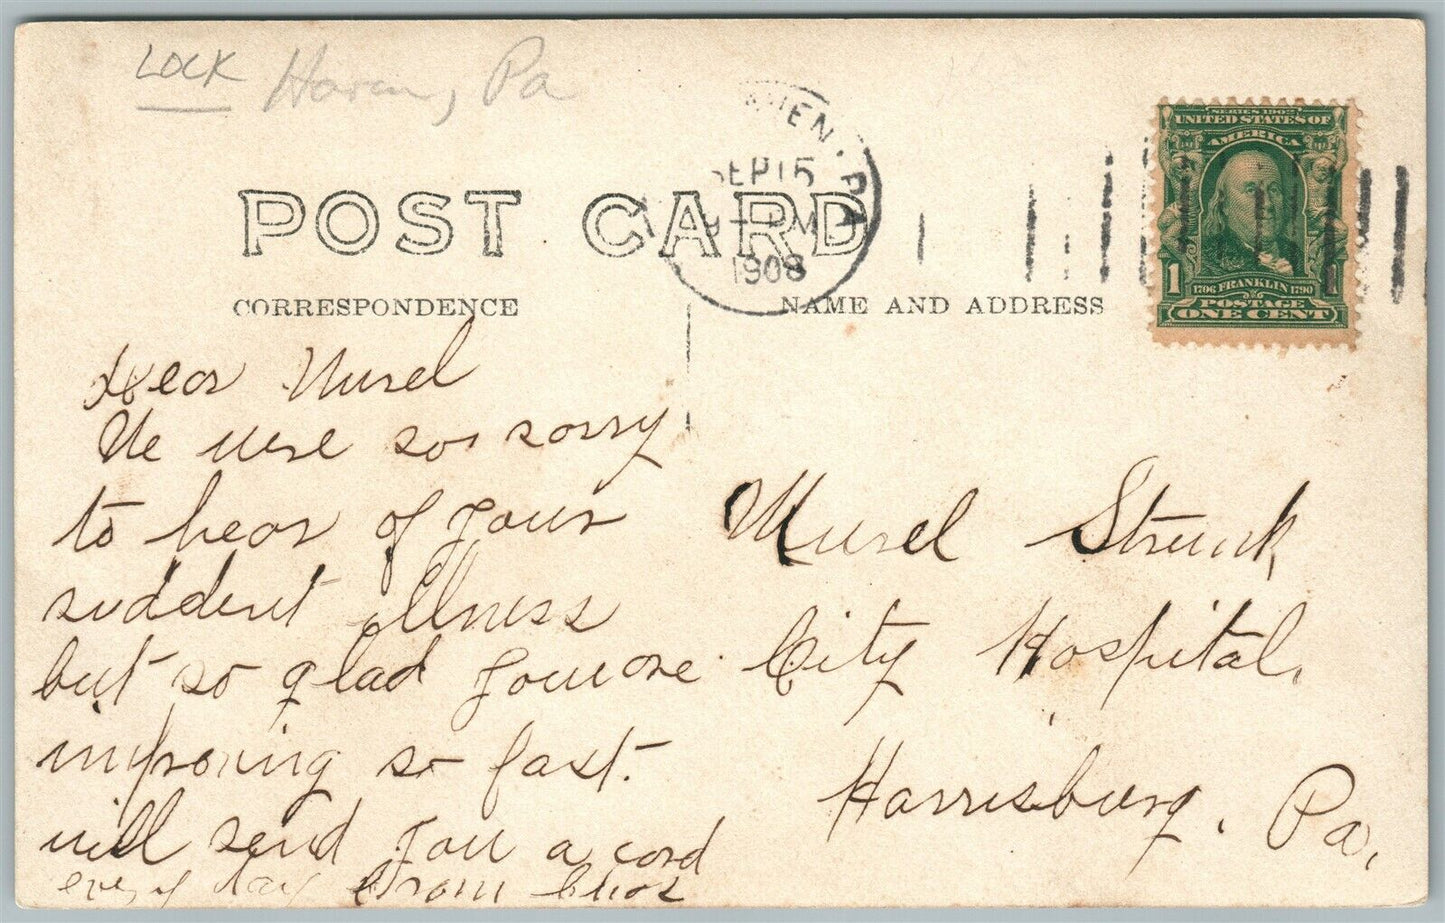 LOCK Haven, Pa
HEN. PA
SEP 15
9 - PM
1908
SERIES 1902
UNITED STATES OF
AMERICA
1
1706 FRANKLIN 1790
POSTAGE
ONE CENT
POST CARD
CORRESPONDENCE
NAME AND ADDRESS
Dear Murel
We were so sorry
to hear of your
suddent illness
but so glad you are
improving so fast.
will send you a card
every day from
Murel Strunk,
City Hospital,
Harrisburg, Pa,